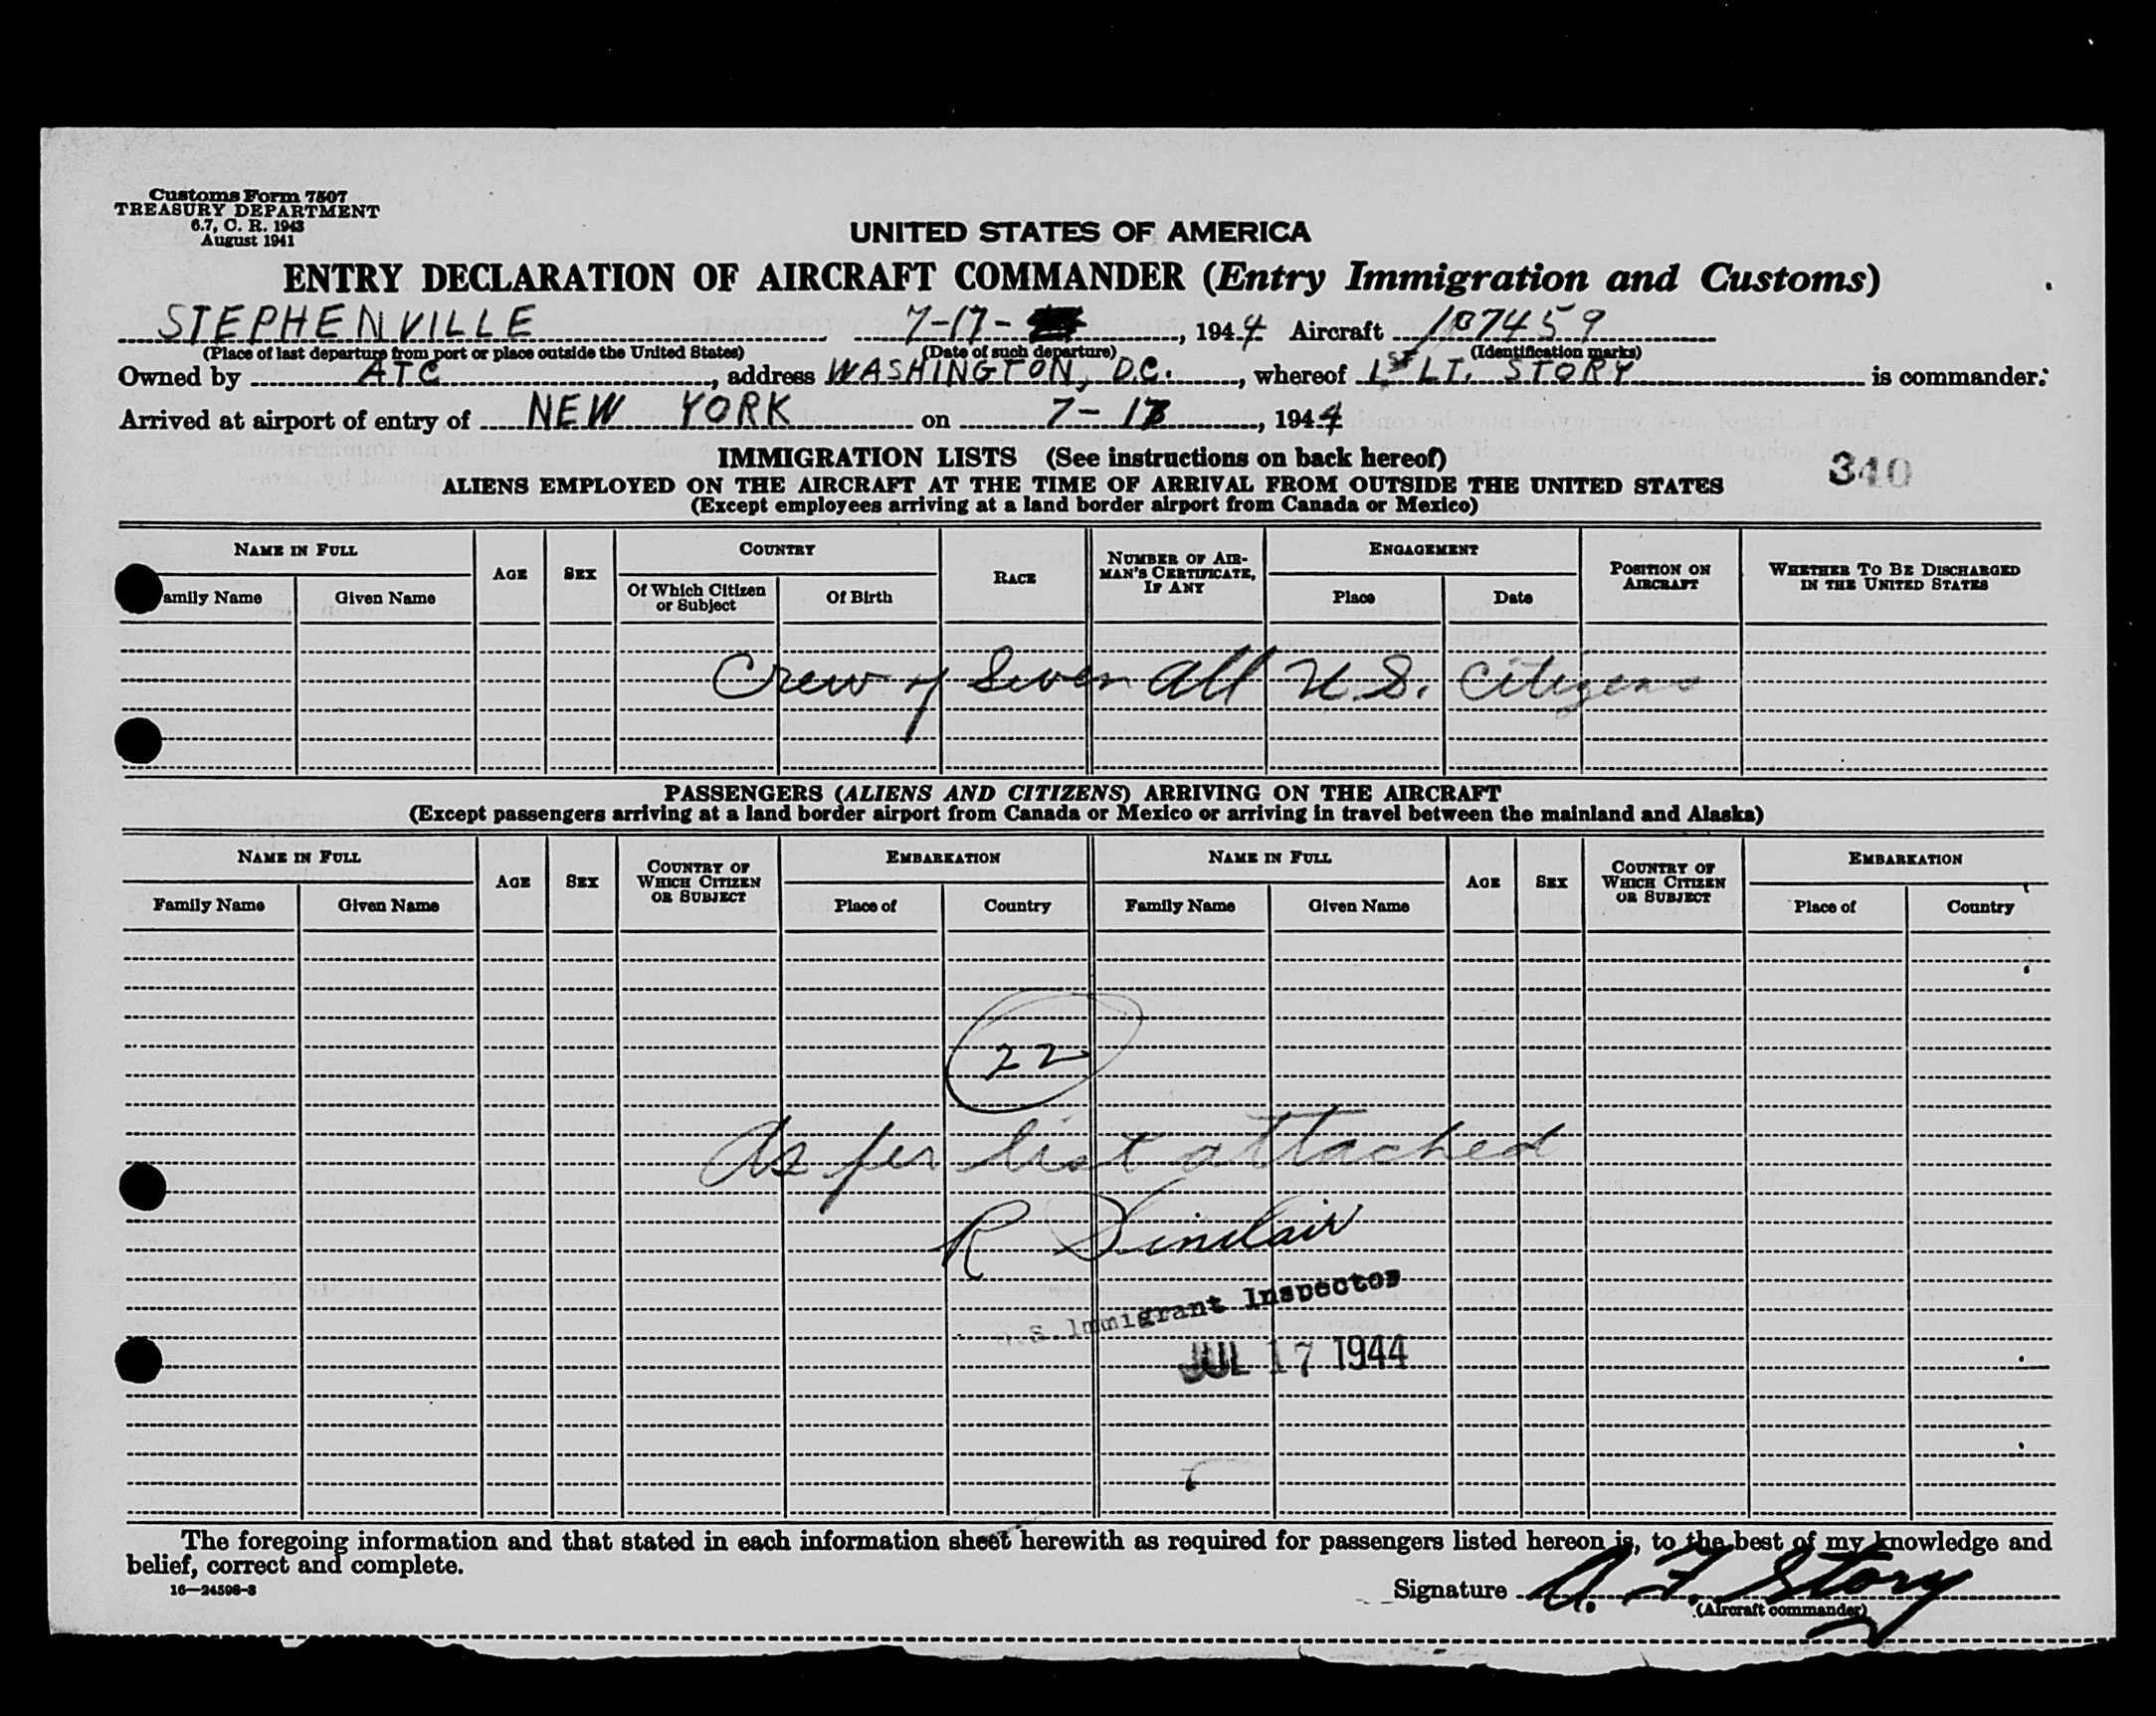 Customs Form 7507
TREASURY DEPARTMENT
6.7, C. R. 1943
August 1941
UNITED STATES OF AMERICA
ENTRY DECLARATION OF AIRCRAFT COMMANDER (Entry Immigration and Customs)
STEPHENVILLE 7-17- , 1944 Aircraft 107459
(Place of last departure from port or place outside the United States) (Date of such departure) (Identification marks)
Owned by ATC, address WASHINGTON, D.C., whereof 1ST LT. STORY is commander.
Arrived at airport of entry of NEW YORK on 7-17, 1944
IMMIGRATION LISTS (See instructions on back hereof)
340
ALIENS EMPLOYED ON THE AIRCRAFT AT THE TIME OF ARRIVAL FROM OUTSIDE THE UNITED STATES
(Except employees arriving at a land border airport from Canada or Mexico)
NAME IN FULL AGE SEX COUNTRY RACE NUMBER OF AIRMAN'S CERTIFICATE, IF ANY ENGAGEMENT POSITION ON AIRCRAFT WHETHER TO BE DISCHARGED IN THE UNITED STATES
amily Name Given Name Of Which Citizen or Subject Of Birth Place Date
Crew of Seven all U.S. Citizens
PASSENGERS (ALIENS AND CITIZENS) ARRIVING ON THE AIRCRAFT
(Except passengers arriving at a land border airport from Canada or Mexico or arriving in travel between the mainland and Alaska)
NAME IN FULL AGE SEX COUNTRY OF WHICH CITIZEN OR SUBJECT EMBARKATION NAME IN FULL AGE SEX COUNTRY OF WHICH CITIZEN OR SUBJECT EMBARKATION
Family Name Given Name Place of Country Family Name Given Name Place of Country
22
As per list attached
R Sinclair
U.S. Immigrant Inspector
JUL 17 1944
The foregoing information and that stated in each information sheet herewith as required for passengers listed hereon is, to the best of my knowledge and
belief, correct and complete.
16—24598-3
Signature A. F. Story
(Aircraft commander)